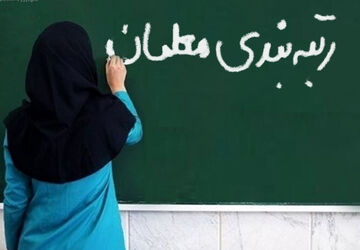 رتبه بندی معلمان